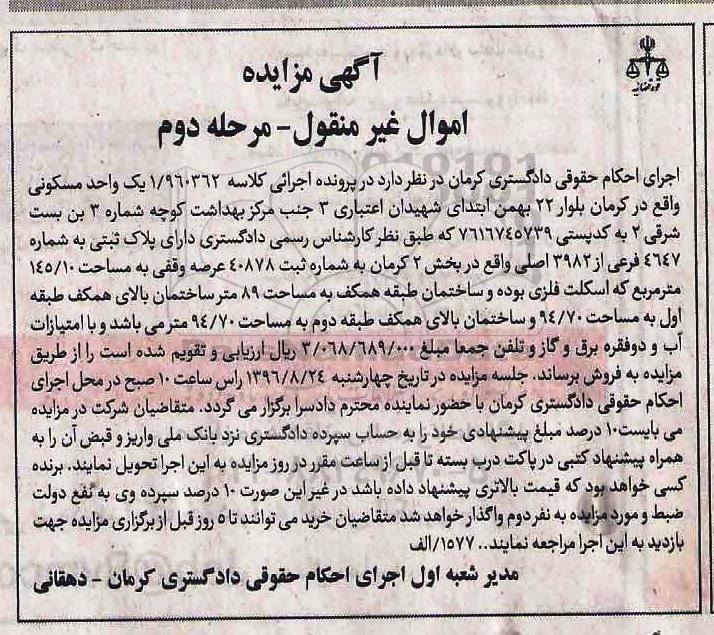 قوه قضاییه
آگهی مزایده
اموال غیر منقول- مرحله دوم
اجرای احکام حقوقی دادگستری کرمان در نظر دارد در پرونده اجرائی کلاسه ۱/۹۶۰۳۶۲ یک واحد مسکونی
واقع در کرمان بلوار ۲۲ بهمن ابتدای شهیدان اعتباری ۳ جنب مرکز بهداشت کوچه شماره ۳ بن بست
شرقی ۲ به کدپستی ۷۶۱۶۷۴۵۷۳۹ که طبق نظر کارشناس رسمی دادگستری دارای پلاک ثبتی به شماره
۴۶۴۷ فرعی از ۳۹۸۲ اصلی واقع در بخش ۲ کرمان به شماره ثبت ۴۰۸۷۸ عرصه وقفی به مساحت ۱۴۵/۱۰
مترمربع که اسکلت فلزی بوده و ساختمان طبقه همکف به مساحت ۸۹ متر ساختمان بالای همکف طبقه
اول به مساحت ۹۴/۷۰ و ساختمان بالای همکف طبقه دوم به مساحت ۹۴/۷۰ متر می باشد و با امتیازات
آب و دوفقره برق و گاز و تلفن جمعا مبلغ ۳/۰۶۸/۶۸۹/۰۰۰ ریال ارزیابی و تقویم شده است را از طریق
مزایده به فروش برساند. جلسه مزایده در تاریخ چهارشنبه ۱۳۹۶/۸/۲۴ راس ساعت ۱۰ صبح در محل اجرای
احکام حقوقی دادگستری کرمان با حضور نماینده محترم دادسرا برگزار می گردد. متقاضیان شرکت در مزایده
می بایست۱۰ درصد مبلغ پیشنهادی خود را به حساب سپرده دادگستری نزد بانک ملی واریز و قبض آن را به
همراه پیشنهاد کتبی در پاکت درب بسته تا قبل از ساعت مقرر در روز مزایده به این اجرا تحویل نمایند. برنده
کسی خواهد بود که قیمت بالاتری پیشنهاد داده باشد در غیر این صورت ۱۰ درصد سپرده وی به نفع دولت
ضبط و مورد مزایده به نفر دوم واگذار خواهد شد متقاضیان خرید می توانند تا ۵ روز قبل از برگزاری مزایده جهت
بازدید به این اجرا مراجعه نمایند.. ۱۵۷۷/الف
مدیر شعبه اول اجرای احکام حقوقی دادگستری کرمان - دهقانی